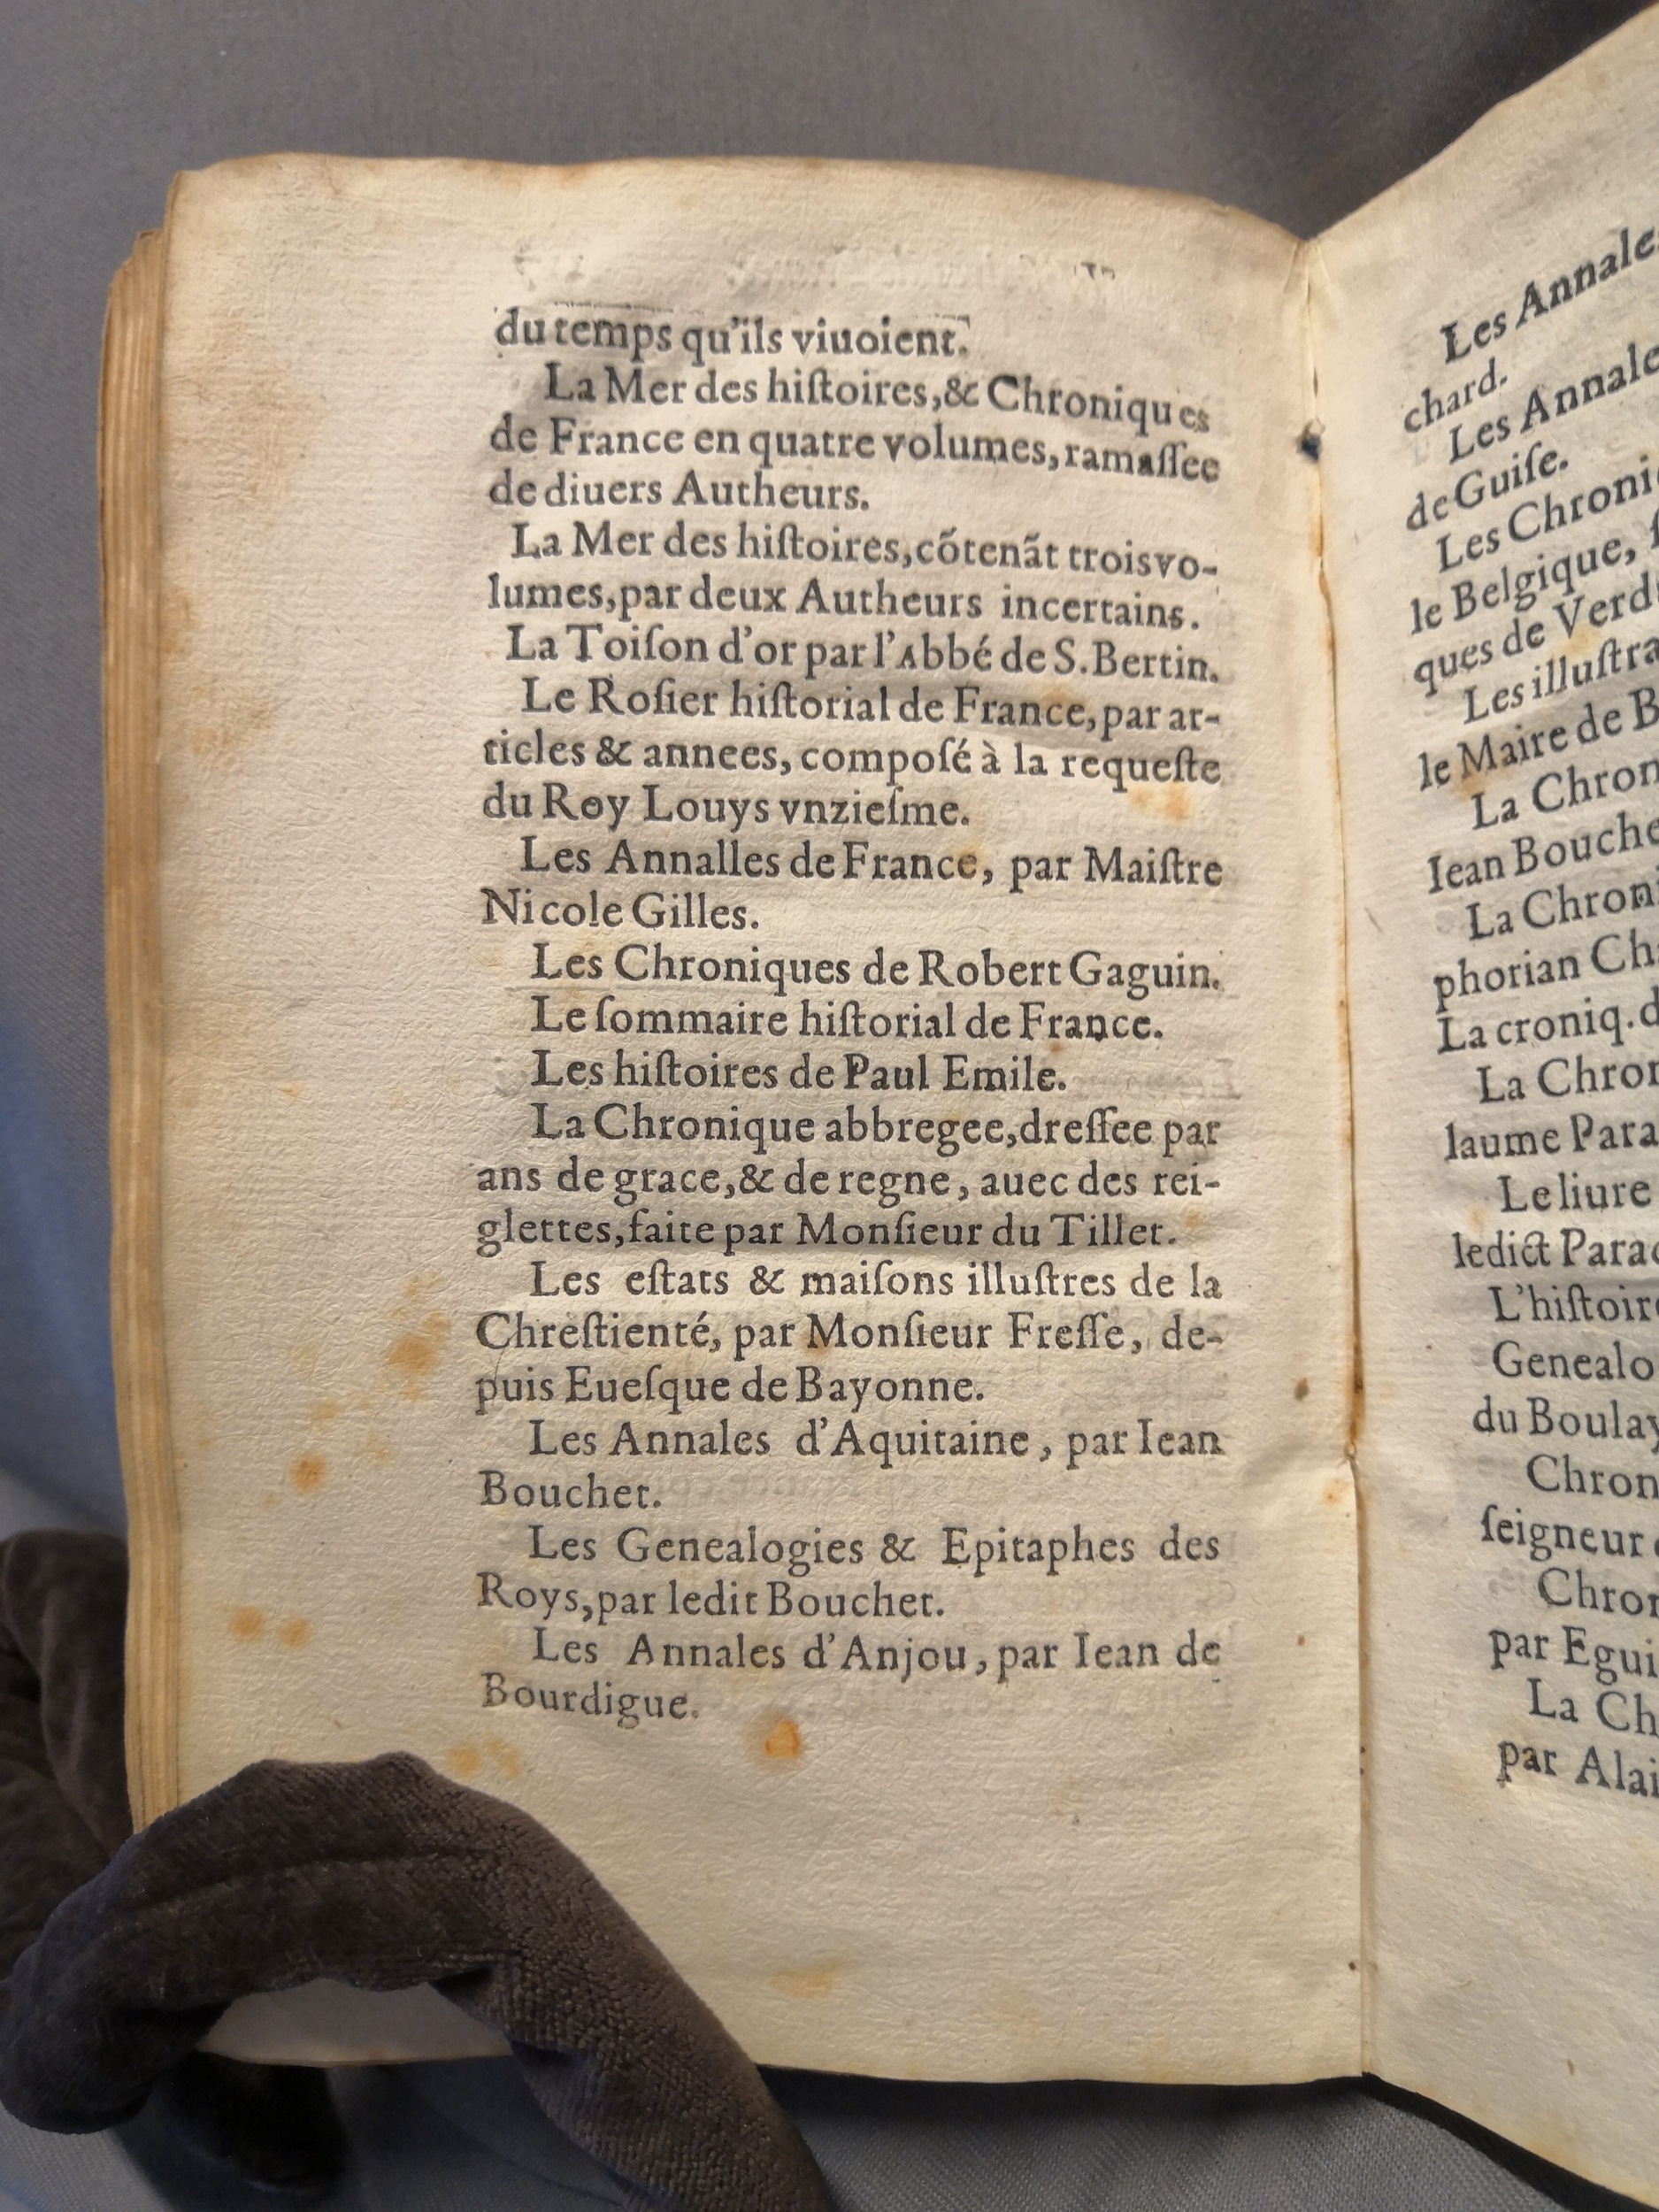 du temps qu'ils viuoient.
La Mer des hiſtoires,& Chroniques
de France en quatre volumes, ramaſſee
de diuers Autheurs.
La Mer des hiſtoires,cõtenãt trois vo-
lumes,par deux Autheurs incertains.
La Toiſon d'or par l'Abbé de S.Bertin.
Le Roſier hiſtorial de France,par ar-
ticles & annees, compoſé à la requeſte
du Roy Louys vnzieſme.
Les Annalles de France, par Maiſtre
Nicole Gilles.
Les Chroniques de Robert Gaguin.
Le ſommaire hiſtorial de France.
Les hiſtoires de Paul Emile.
La Chronique abbregee,dreſſee par
ans de grace,& de regne, auec des rei-
glettes,faite par Monſieur du Tillet.
Les eſtats & maiſons illuſtres de la
Chreſtienté, par Monſieur Freſſe, de-
puis Eueſque de Bayonne.
Les Annales d'Aquitaine, par Iean
Bouchet.
Les Genealogies & Epitaphes des
Roys,par ledit Bouchet.
Les Annales d'Anjou, par Iean de
Bourdigue.
Les Annale
chard.
Les Annale
de Guiſe.
Les Chroni
le Belgique,
ques de Verd
Les illuſtra
le Maire de B
La Chron
Iean Bouche
La Chron
phorian Ch
La croniq. d
La Chron
laume Para
Le liure
ledict Para
L'hiſtoir
Genealo
du Boulay
Chron
ſeigneur
Chron
par Egui
La Ch
par Alai